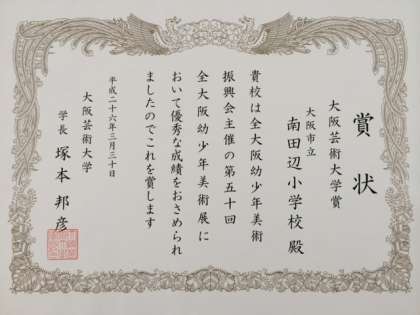 賞状
大阪芸術大学賞
大阪市立
南田辺小学校殿
貴校は全大阪幼少年美術
振興会主催の第五十回
全大阪幼少年美術展に
おいて優秀な成績をおさめられ
ましたのでこれを賞します
平成二十六年三月三十日
大阪芸術大学
学長 塚本邦彦